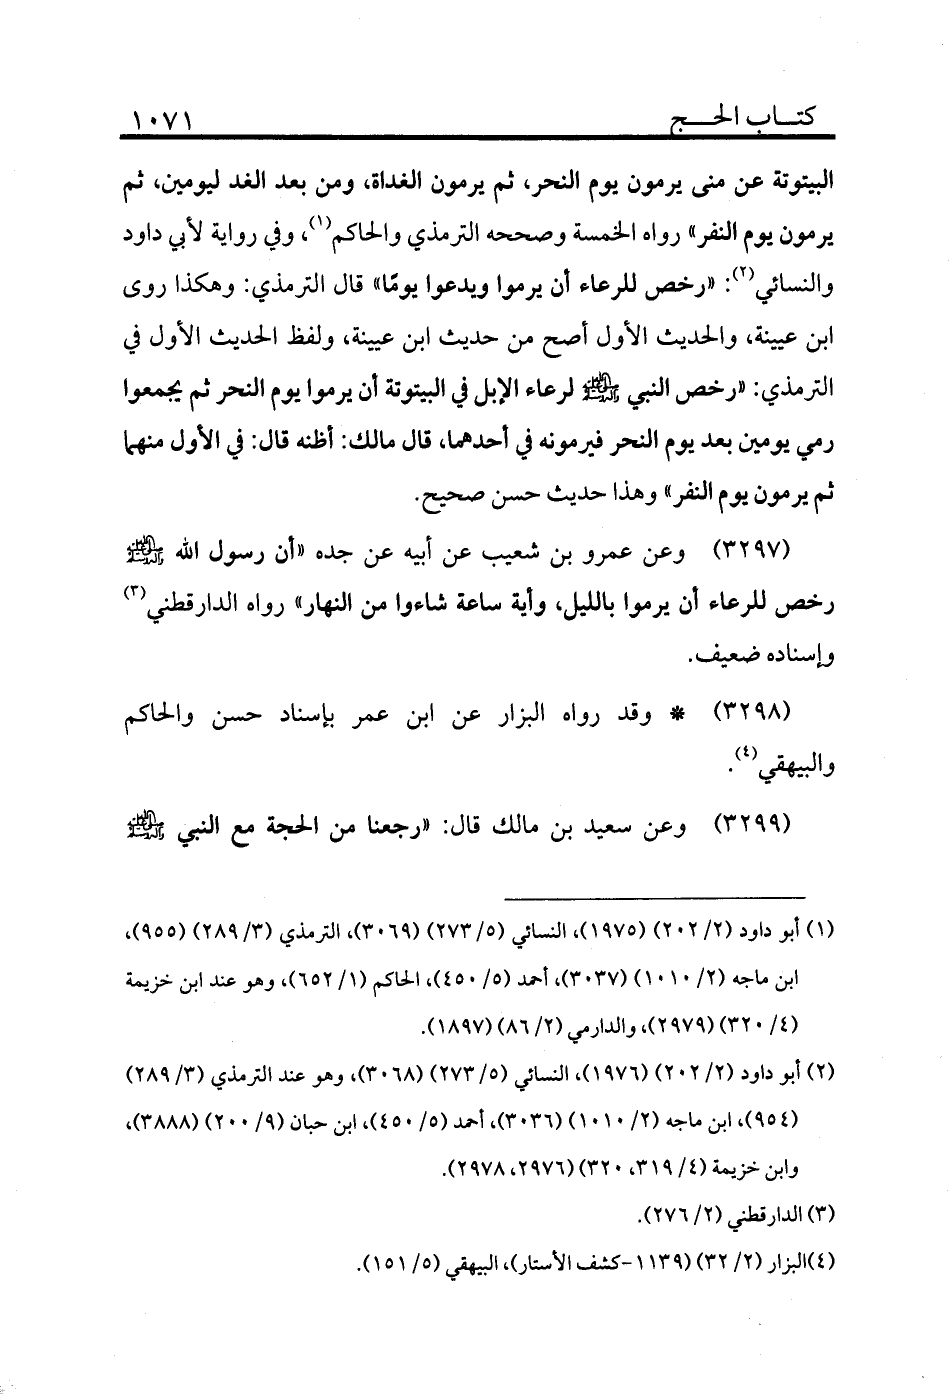 كتاب الحج ١٠٧١
البيتوتة عن منى يرمون يوم النحر، ثم يرمون الغداة، ومن بعد الغد ليومين، ثم
يرمون يوم النفر» رواه الخمسة وصححه الترمذي والحاكم(١)، وفي رواية لأبي داود
والنسائي(٢): «رخص للرعاء أن يرموا ويدعوا يومًا» قال الترمذي: وهكذا روى
ابن عيينة، والحديث الأول أصح من حديث ابن عيينة، ولفظ الحديث الأول في
الترمذي: «رخص النبي ﷺ لرعاء الإبل في البيتوتة أن يرموا يوم النحر ثم يجمعوا
رمي يومين بعد يوم النحر فيرمونه في أحدهما، قال مالك: أظنه قال: في الأول منهما
ثم يرمون يوم النفر» وهذا حديث حسن صحيح.
(٣٢٩٧) وعن عمرو بن شعيب عن أبيه عن جده «أن رسول الله ﷺ
رخص للرعاء أن يرموا بالليل، وأية ساعة شاءوا من النهار» رواه الدارقطني(٣)
وإسناده ضعيف.
(٣٢٩٨) * وقد رواه البزار عن ابن عمر بإسناد حسن والحاكم
والبيهقي(٤).
(٣٢٩٩) وعن سعيد بن مالك قال: «رجعنا من الحجة مع النبي ﷺ
(١) أبو داود (٢/ ٢٠٢) (١٩٧٥)، النسائي (٥/ ٢٧٣) (٣٠٦٩)، الترمذي (٣/ ٢٨٩) (٩٥٥)،
ابن ماجه (٢/ ١٠١٠) (٣٠٣٧)، أحمد (٥/ ٤٥٠)، الحاكم (١/ ٦٥٢)، وهو عند ابن خزيمة
(٤/ ٣٢٠) (٢٩٧٩)، والدارمي (٢/ ٨٦) (١٨٩٧).
(٢) أبو داود (٢/ ٢٠٢) (١٩٧٦)، النسائي (٥/ ٢٧٣) (٣٠٦٨)، وهو عند الترمذي (٣/ ٢٨٩)
(٩٥٤)، ابن ماجه (٢/ ١٠١٠) (٣٠٣٦)، أحمد (٥/ ٤٥٠)، ابن حبان (٩/ ٢٠٠) (٣٨٨٨)،
وابن خزيمة (٤/ ٣١٩، ٣٢٠) (٢٩٧٦، ٢٩٧٨).
(٣) الدارقطني (٢/ ٢٧٦).
(٤)البزار (٢/ ٣٢) (١١٣٩-كشف الأستار)، البيهقي (٥/ ١٥١).